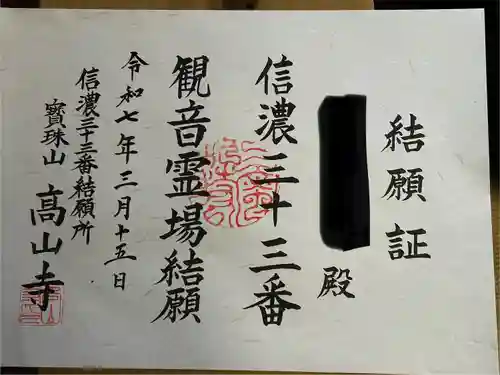 結願証
殿
信濃三十三番
観音霊場結願
令和七年三月十五日
信濃三十三番結願所
寳珠山 高山寺